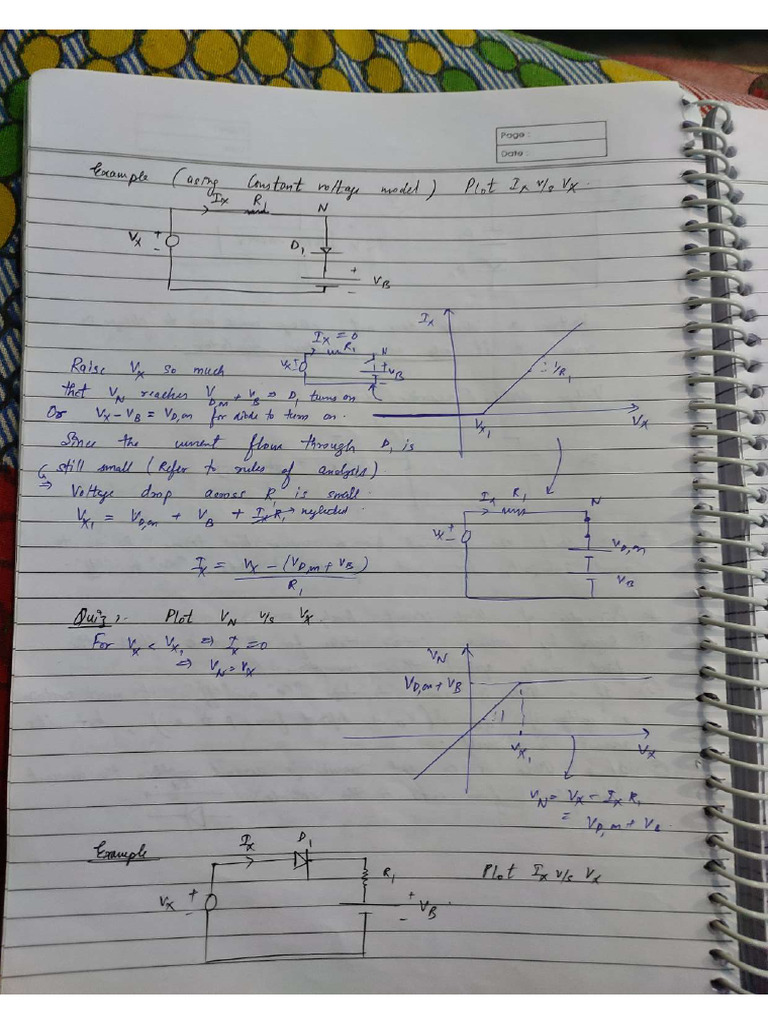 Page :
Date :
Example (using Constant voltage model) Plot Ix v/s Vx.
Ix R1 N
Vx + -
D1
+ VB -
Ix
Ix = 0
R1 N
Vx + -
+ VB -
1/R1
Vx1
Vx
Raise Vx so much
that VN reaches VD,on + VB ⇒ D1 turns on
Or Vx - VB = VD,on for diode to turn on.
Since the current flow through D1 is
still small (Refer to rules of analysis)
⇒ Voltage drop across R1 is small.
Vx1 = VD,on + VB + IxR1 → neglected
Ix R1 N
Vx + -
VD,on
VB
Ix = Vx - (VD,on + VB)
R1
Quiz :- Plot VN v/s Vx.
For Vx < Vx1 ⇒ Ix = 0
⇒ VN = Vx
VN
VD,on + VB
1
Vx1
Vx
VN = Vx - Ix R1
= VD,on + VB
Example
Ix D1
R1
Vx + -
+ VB -
Plot Ix v/s Vx